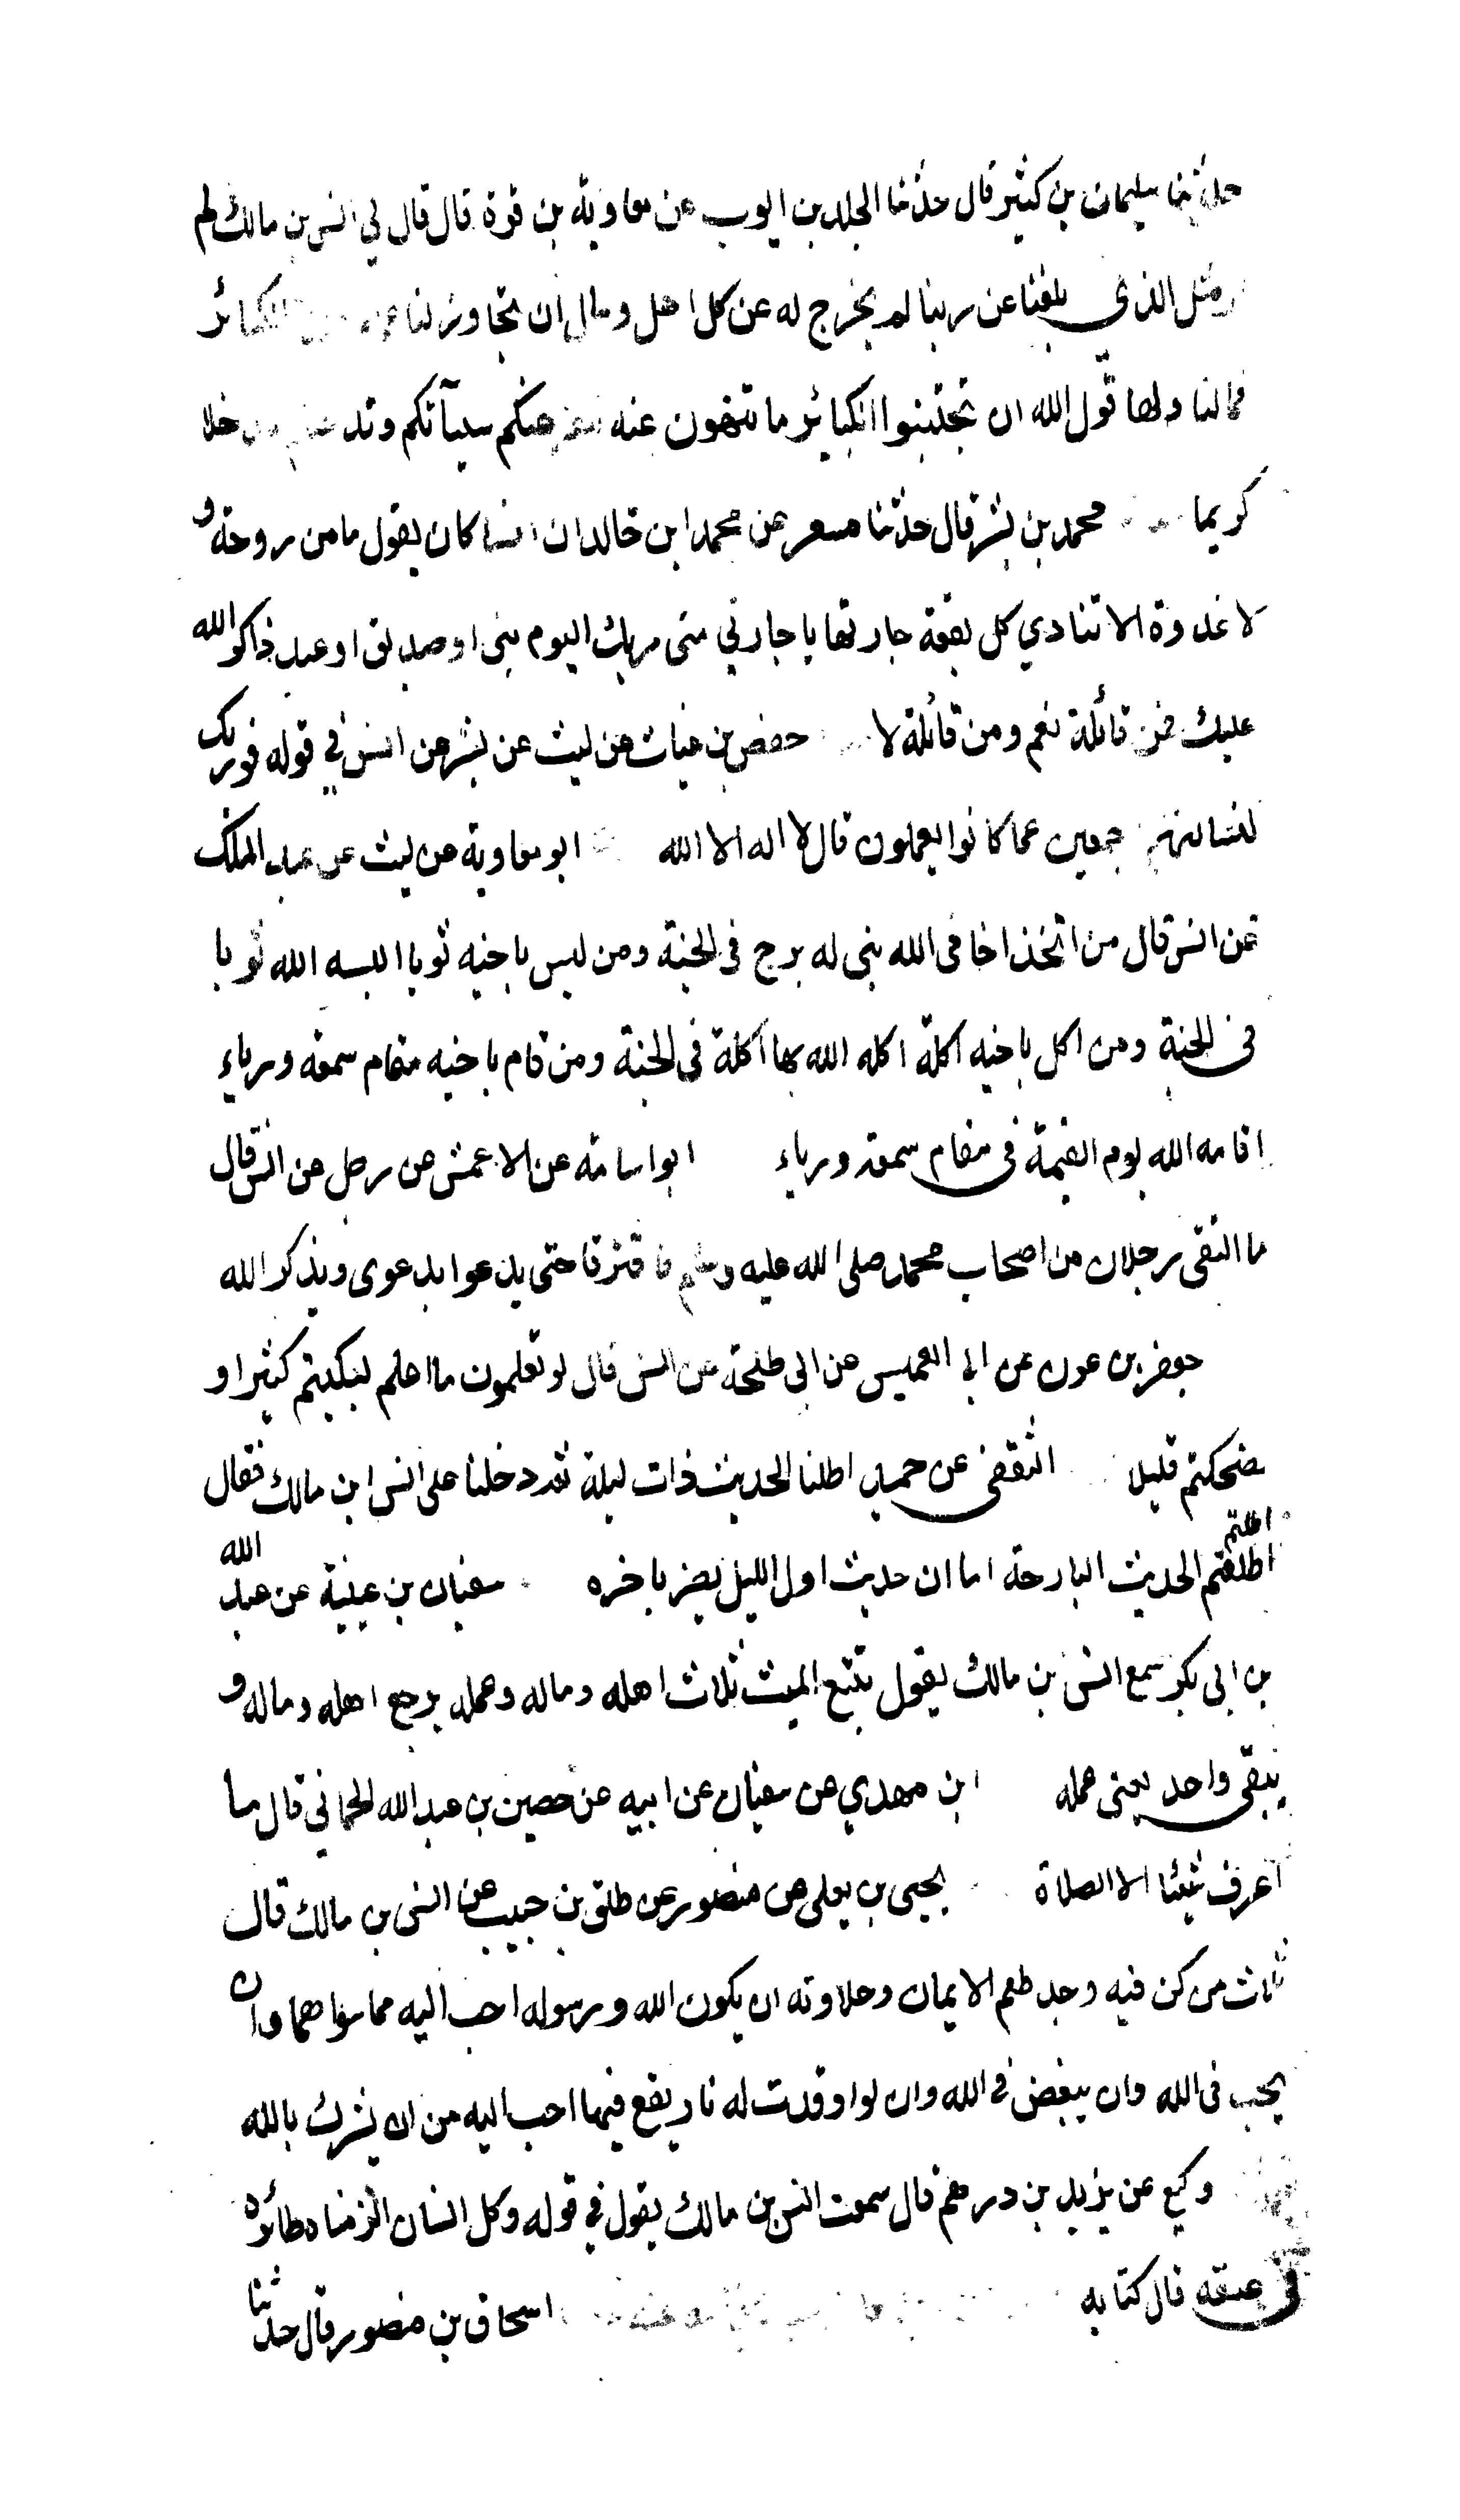 حدثنا سليمان بن كثير قال حدثنا الجلد بن ايوب عن معاوية بن قرة قال قال لي انس بن مالك لم
ار مثل الذي بلغنا عن ربنا لم يخرج له عن كل اهل ومال ان تجاوز لنا الكبائر
فما لنا ولها قول الله ان تجتنبوا الكبائر ما تنهون عنه نكفر عنكم سيآتكم وند خلا
كريما محمد بن بشر قال حدثنا مسعر عن محمد ابن خالد ان انسا كان يقول ما من روحة و
لا غدوة الا تنادي كل بقعة جارتها يا جارتي متى مر بك اليوم نبي او صديق او عبد ذاكر الله
عليك فمن قائلة نعم ومن قائلة لا حفص بن غياث عن ليث عن بشر عن انس في قوله فوربك
لنسالنهم جمعين عما كانوا يعملون قال لا اله الا الله ابو معاوية عن ليث عن عبد الملك
عن انس قال من اتخذ اخا في الله بنى له برج في الجنة ومن لبس باخيه ثوبا البسه الله ثوبا
في الجنة ومن اكل باخيه اكلة اكله الله بها اكلة في الجنة ومن قام باخيه مقام سمعه ورياء
اقامه الله يوم القيمة في مقام سمعه ورياء ابو اسامة عن الاعمش عن رجل عن انس قال
ما التقى رجلان من اصحاب محمد صلى الله عليه وسلم فافترقا حتى يدعوا بدعوى ويذكر الله
جعفر بن عون عن ابي العميس عن ابي طلحة عن انس قال لو تعلمون ما اعلم لبكيتم كثيرا و
لضحكتم قليلا الثقفي عن حميد اطلنا الحديث ذات ليلة ثم دخلنا على انس ابن مالك فقال
اطلتم
اطلقتم الحديث البارحة اما ان حديث اول الليل يضر باخره سفيان بن عيينة عن عبد الله
بن ابي بكر سمع انس بن مالك يقول يتبع الميت ثلاث اهله وماله وعمله يرجع اهله وماله و
يبقى واحد يعني عمله ابن مهدي عن سفيان عن ابيه عن حصين بن عبد الله الحماني قال ما
اعرف شيئا الا الصلاة يحيى بن يعلى عن منصور عن طلق بن حبيب عن انس بن مالك قال
ثلاث من كن فيه وجد طعم الايمان وحلاوته ان يكون الله ورسوله احب اليه مما سواهما وان
يحب في الله وان يبغض في الله وان لو اوقدت له نار يقع فيها احب اليه من ان يشرك بالله
وكيع عن يزيد بن درهم قال سمعت انس بن مالك يقول في قوله وكل انسان الزمناه طائره
في عنقه قال كتابه اسحاق بن منصور قال حدثنا